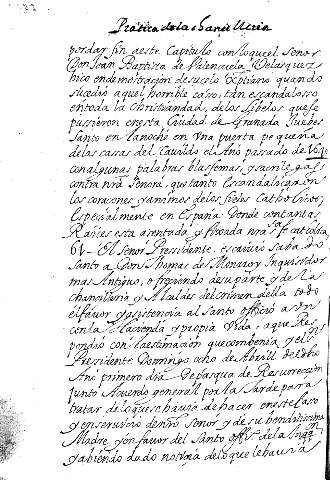 Pratica de la Chancilleria
por dar fin a este Capitulo con lo que el Señor
Don Joan Baptista de Valenzuela Velasquez
hico en demostracion de su celo Xptiano quando
sucedio aquel horrible caso, tan escandalosso
en toda la Christiandad, de los libelos que se
pussieron en esta Ciudad de Granada Juebes
Santo en la noche en Una puerta pequeña
de las cassas del Cavildo el Año passado de
con algunas palabras blasfemas, y sacrilegas
contra nra Señora, que tanto Escandaliçaron
los coraçones y animos de los fieles Catholicos,
Especialmente en España donde con tantas
Raices esta arentada y fixada nra sta fe catholica
61 - El Señor Presidente, escrivio sabado
Santo a Don Thomas de Inquisidor
mas Antiguo, ofreciendo de su parte y de la
chancilleria y Alcaldes del crimen della todo
el fabor y asistencia al Santo officio aun
con la Hacienda y propia Vida, a que Res
pondio con la estimacion que combenia y el Sr
Presidente Domingo ocho de Abrill de dho
Año primero dia de Pasqua de Resurreccion
junto Acuerdo general por la tarde para
tratar de lo que se havia de hacer en este caso
y en servicio de nro Señor y de su benditissima
Madre y en fabor del Santo offo de la Inqon
y abiendo dado noticia de lo que le havia